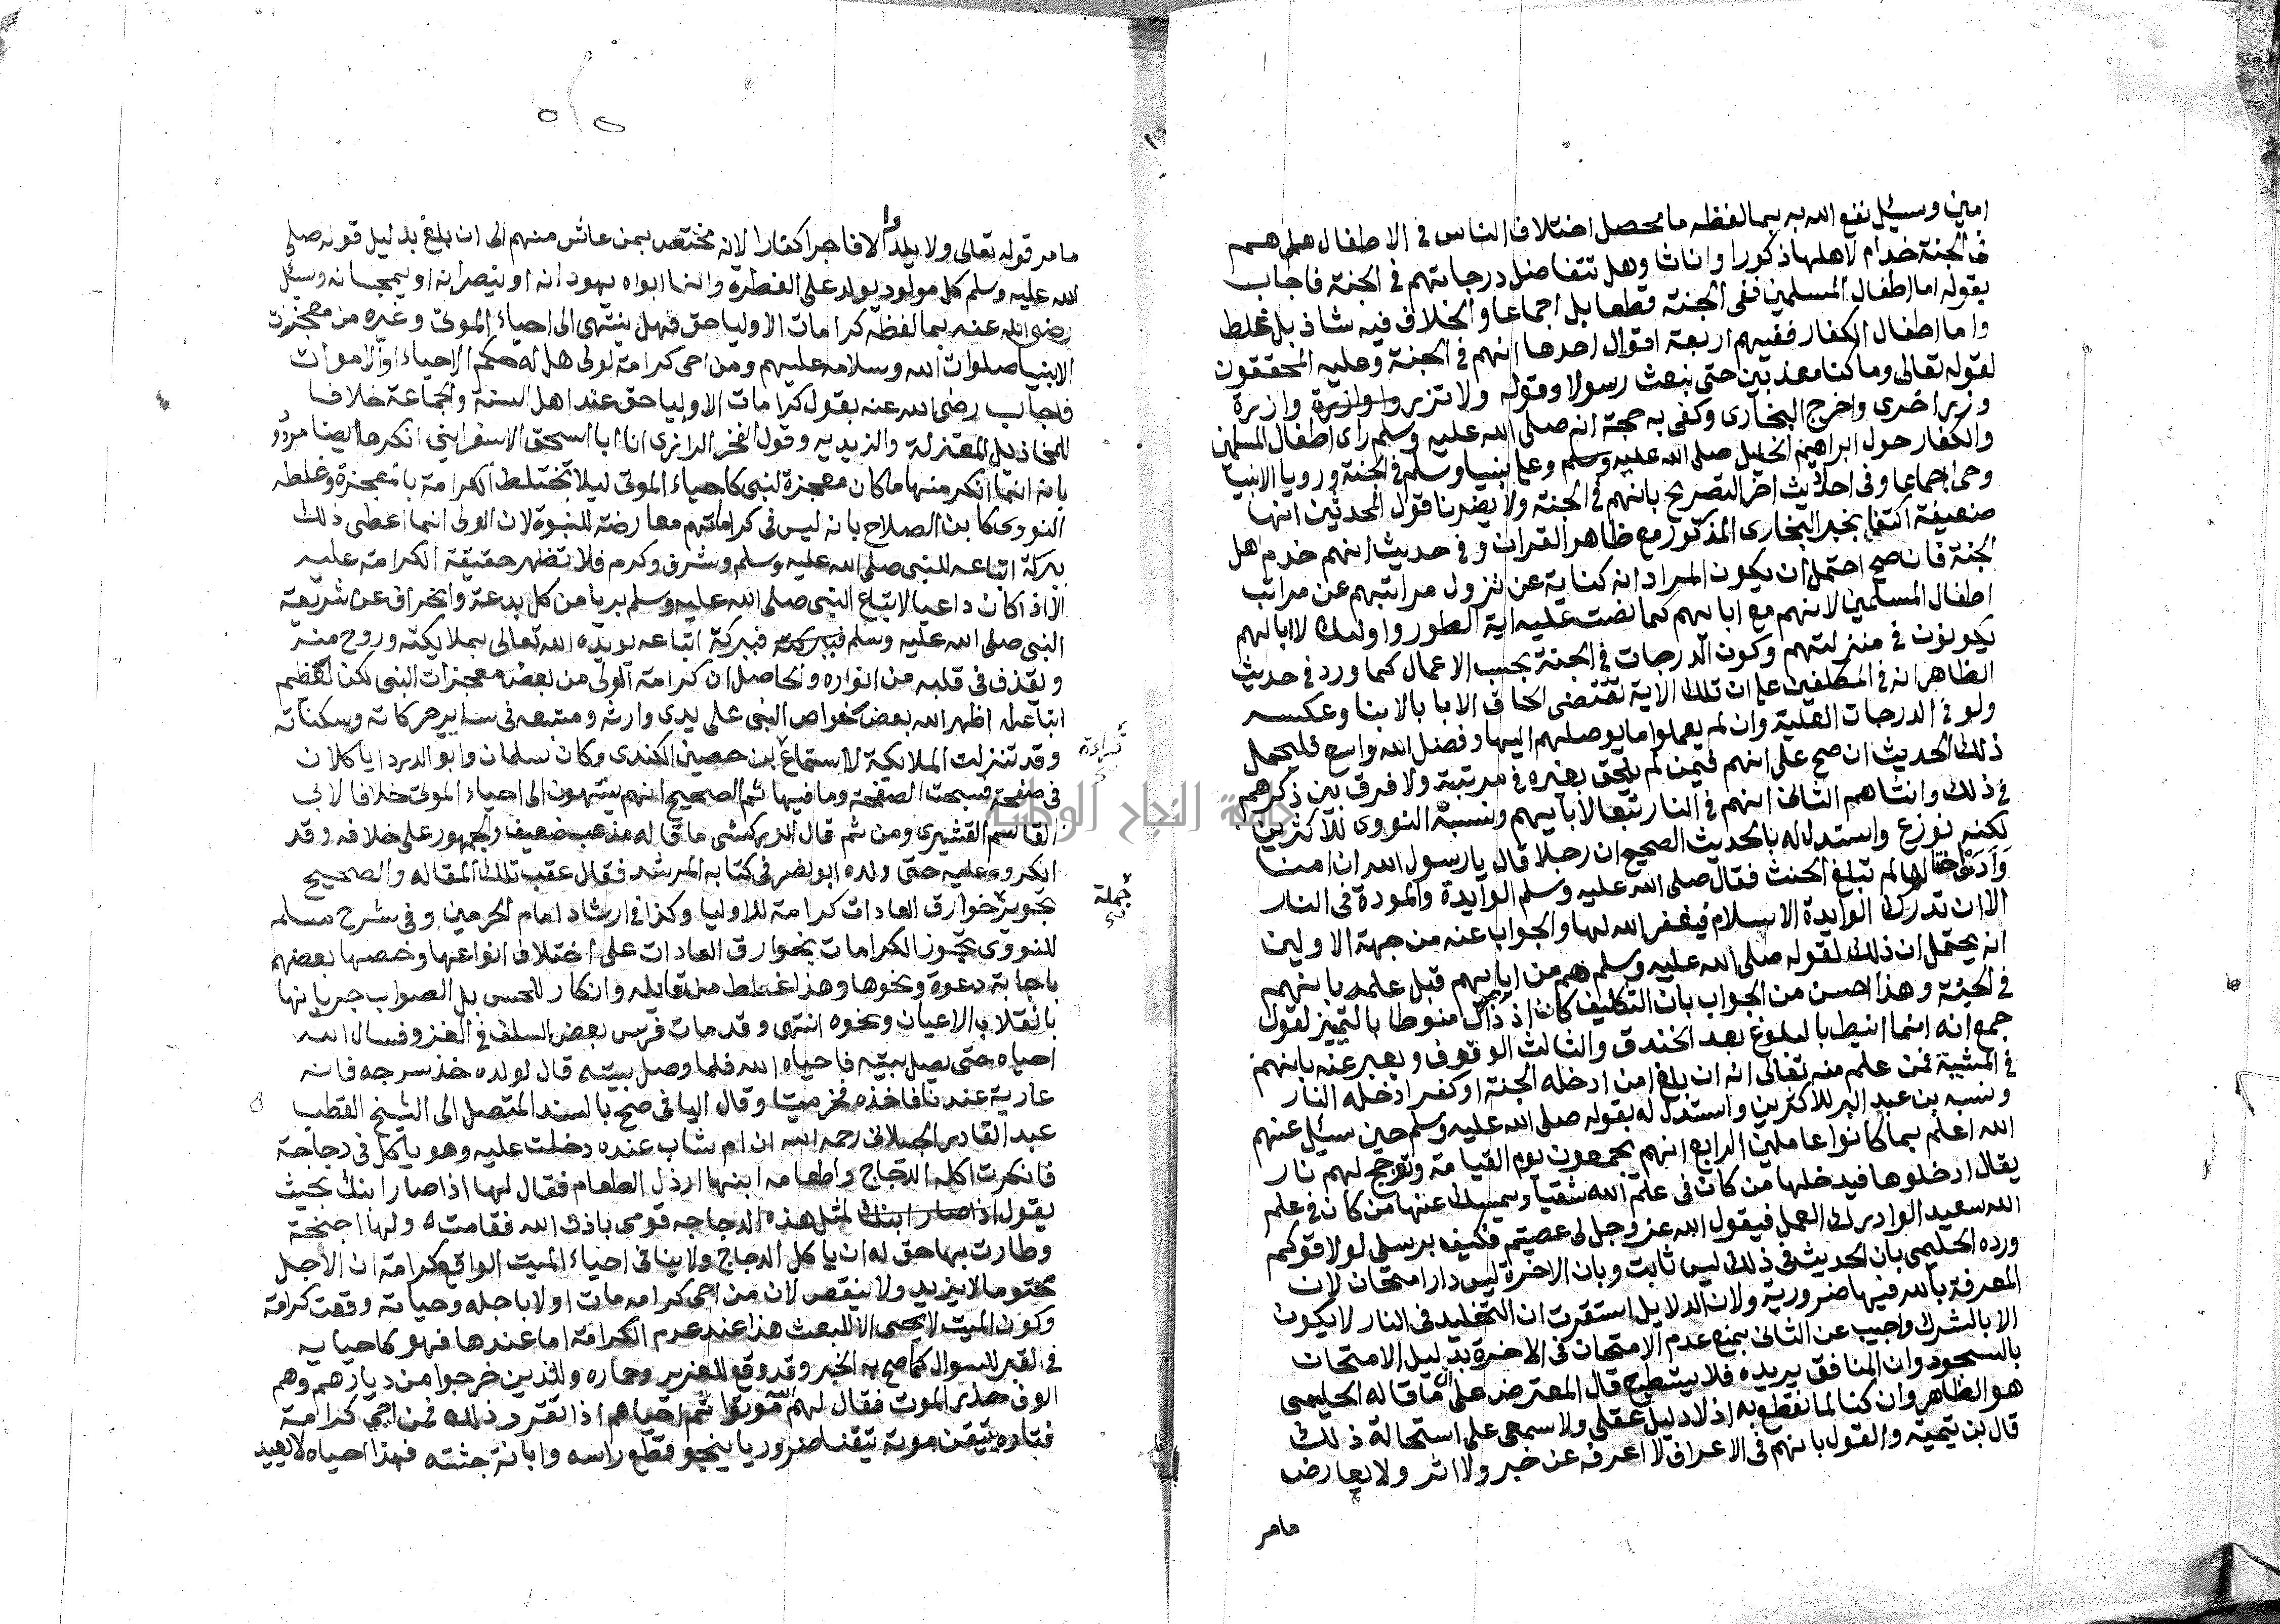 امين وسيئل نفع الله به بما لفظه ما محصل اختلاف الناس في الاطفال هل هم
في الجنة خدام لاهلها ذكورا واناثا وهل تتفاضل درجاتهم في الجنة فاجاب
بقوله اما اطفال المسلمين ففي الجنة قطعا بل اجماعا والخلاف فيه شاذ بل غلط
واما اطفال الكفار ففيهم اربعة اقوال احدها انهم في الجنة وعليه المحققون
لقوله تعالى وما كنا معذبين حتى نبعث رسولا وقوله ولا تزر وازرة
وزر اخرى واخرج البخارى وكفى به حجة انه صلى الله عليه وسلم راى اطفال المسلمين
والكفار حول ابراهيم الخليل صلى الله عليه وسلم وعلى نبينا وسلم في الجنة ورويا الانبيا
وحى اجماعا وفى احاديث اخر التصريح بانهم في الجنة ولا يضرنا قول المحدثين انها
ضعيفة اكتفا بخبر البخارى المذكور مع ظاهر القران وفى حديث انهم خدم اهل
الجنة فان صح احتمل ان يكون المراد انه كناية عن نزول مراتبهم عن مراتب
اطفال المسلمين لانهم مع ابايهم كما نصت عليه اية الطور واوليك لا ابا لهم
يكونون في منزلتهم وكون الدرجات في الجنة بحسب الاعمال كما ورد في حديث
الظاهر انه في المكلفين على ان تلك الاية تقتضى الحاق الابا بالابنا وعكسه
ولو في الدرجات العلية وان لم يعملوا ما يوصلهم اليها وفضل الله واسع فليحمل
ذلك الحديث ان صح على انهم فيمن لم يلحق بغيره في مرتبة ولا فرق بين ذكرهم
في ذلك وانثاهم الثانى انهم في النار تبعا لابايهم ونسبه النووى للاكثرين
لكنه نوزع واستدل له بالحديث الصحيح ان رجلا قال يا رسول الله ان امنا
وادت اختا لها لم تبلغ الحنث فقال صلى الله عليه وسلم الوايدة والمودة فى النار
الا ان تدرك الوايدة الاسلام فيغفر الله لها والجواب عنه من جهة الاولين
انه يحتمل ان ذلك لقوله صلى الله عليه وسلم هم من ابايهم قبل علمه بانهم
في الجنة وهذا احسن من الجواب بان التكليف كان اذ ذاك منوطا بالتمييز لقول
جمع انه انما انيط بالبلوغ بعد الخندق والثالث الوقوف ويعبر عنه بانهم
في المشية فمن علم منه تعالى انه ان بلغ امن ادخله الجنة او كفر ادخله النار
ونسبه بن عبد البر للاكثرين واستدل له بقوله صلى الله عليه وسلم حين سيئل عنهم
الله اعلم بما كانوا عاملين الرابع انهم يجمعون يوم القيامة وتوجج لهم نار
يقال ادخلوها فيدخلها من كان فى علم الله شقيا ويمسك عنها من كان في علم
الله سعيد الو ادرك العمل فيقول الله عز وجل لى عصيتم فكيف برسلى لو لاقوكم
ورده الحليمى بان الحديث فى ذلك ليس ثابت وبان الاخرة ليس دار امتحان لان
المعرفة بالله فيها ضرورية ولان الدلايل استقرت ان التخليد فى النار لا يكون
الا بالشرك واجيب عن الثانى بمنع عدم الامتحان فى الاخرة بدليل الامتحان
بالسجود وان المنافق يريده فلا يستطيع قال المعترض على ما قاله الحليمى
هو الظاهر وان كنا لما نقطع به اذ لا دليل عقلى ولا سمعى على استحالة ذلك
قال بن تيمية والقول بانهم فى الاعراف لا اعرفه عن خبر ولا اثر ولا يعارض
مامر
مامر قوله تعالى ولا يلدوا الا فاجرا كفارا لانه مختص بمن عاش منهم الى ان بلغ بدليل قوله صلى
الله عليه وسلم كل مولود يولد على الفطرة وانما ابواه يهودانه او ينصرانه او يمجسانه وسيئل
رضى الله عنه بما لفظه كرامات الاوليا حق فهل ينتهى الى احياء الموتى وغيره من معجزات
الانبيا صلوات الله وسلامه عليهم ومن احى كرامة لولى هل له حكم الاحياء او الاموات
فاجاب رضى الله عنه بقوله كرامات الاوليا حق عند اهل السنة والجماعة خلافا
للمخاذيل المعتزلة والزيديه وقول الفخر الرازى ان ابا اسحق الاسفراينى انكرها ايضا مردود
بانه انما انكر منها ما كان معجزة لنبى كاحياء الموتى ليلا تختلط الكرامة بالمعجزة وغلطه
النووى كابن الصلاح بانه ليس فى كراماتهم معارضة للنبوة لان الولى انما اعطى ذلك
ببركة اتباعه للنبى صلى الله عليه وسلم وشرف وكرم فلا تظهر حقيقة الكرامة عليه
الا اذا كان داعيا لاتباع النبى صلى الله عليه وسلم بريا من كل بدعة وانحراف عن شريعة
النبى صلى الله عليه وسلم فببركة اتباعه يويده الله تعالى بملايكته وروح منه
ويقذف فى قلبه من انواره والحاصل ان كرامة الولى من بعض معجزات النبى لكن لعظم
اتباعه له اظهر الله بعض خواص النبى على يدى وارثه ومتبعه فى ساير حركاته وسكناته
وقد تنزلت الملايكة لاستماع بن حصين الكندى وكان سلمان وابو الدرداء ياكلان
قراءة
فى صفحة فسبحت الصفحة وما فيها ثم الصحيح انهم ينتهون الى احياء الموتى خلافا لابى
القاسم القشيرى ومن ثم قال الزركشى ما قاله مذهب ضعيف والجمهور على خلافه وقد
انكروه عليه حتى ولده ابو نصر فى كتابه المرشد فقال عقب تلك المقاله والصحيح
تجويز خوارق العادات كرامة للاوليا وكذا في ارشاد امام الحرمين وفى شرح مسلم
جملة
للنووى تجوز الكرامات بخوارق العادات على اختلاف انواعها وخصها بعضهم
باجابة دعوة ونحوها وهذا غلط من قايله وانكار للحس بل الصواب جريانها
بانقلاب الاعيان ونحوه انتهى وقد مات فرس بعض السلف في الغزو فسال الله
احياه حتى يصل بيته فاحياه الله فلما وصل بيته قال لولده خذ سرجه فانه
عارية عندنا فاخذه فخر ميتا وقال اليافى صح بالسند المتصل الى الشيخ القطب
عبد القادر الجيلانى رحمه الله ان ام شاب عنده دخلت عليه وهو ياكل فى دجاجة
فانكرت اكله الدجاج واطعامه ابنها ارذل الطعام فقال لها اذا صار ابنك بحيث
يقول اذا صار ابنك لمثل هذه الدجاجه قومى باذن الله فقامت ولها اجنحة
وطارت بها حق له ان ياكل الدجاج ولا ينافى احياء الميت الواقع كرامة ان الاجل
محتوم لا يزيد ولا ينقص لان من احى كرامه مات اولا باجله وحياته وقعت كرامة
وكون الميت لا يحى الا للبعث هذا عند عدم الكرامة اما عندها فهو كاحيايه
فى القبر للسوال كما صح به الخبر وقد وقع للعزير وحماره وللذين خرجوا من ديارهم وهم
الوف حذر الموت فقال لهم الله موتوا ثم احياهم اذا تقرر ذلك فمن احى كرامة
فتاره يتيقن موته تيقنا ضروريا بنحو قطع راسه وابانة جثته فهذا احياه لا يعيد
جامعة النجاح الوطنية